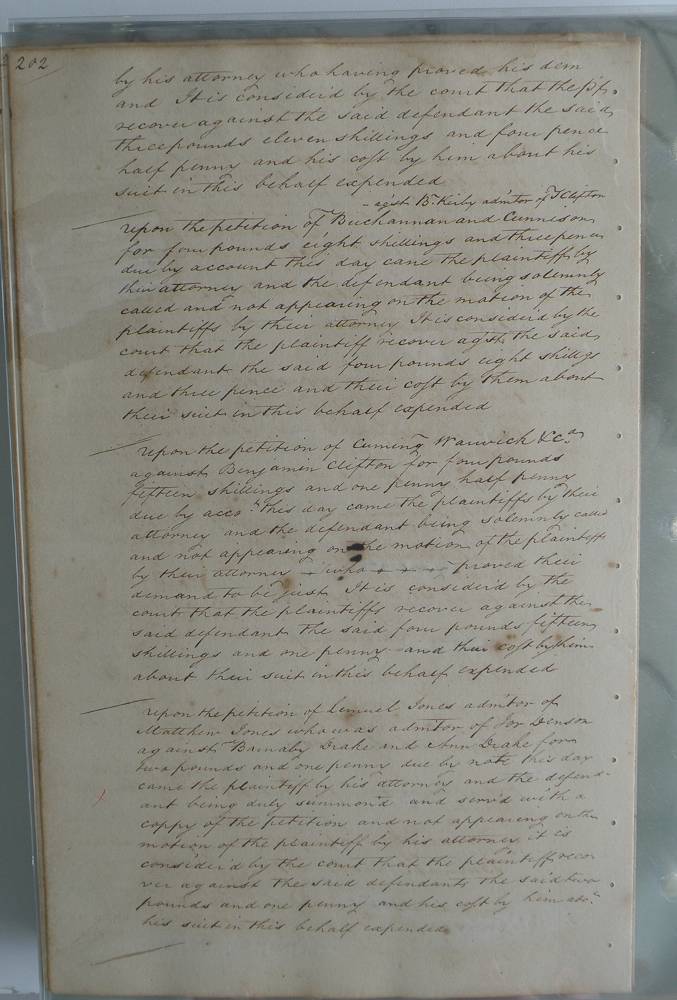 202
by his attorney who having proved his dem
and It is consider'd by the court that the pltf
recover against the said defendant the said
three pounds eleven shillings and four pence
half penny and his cost by him about his
suit in this behalf expended
- agst B. Kirby admtor of T Clifton
Upon the petition of Buchannan and Cunnison
for four pounds eight shillings and three pence
due by account this day came the plaintiffs by
their attorney and the defendant being solemnly
called and not appearing on the motion of the
plaintiffs by their attorney It is consider'd by the
court that the plaintiff recover agst the said
defendant the said four pounds eight shillgs
and three pence and their cost by them about
their suit in this behalf expended
Upon the petition of Cuming Warwick & Co
against Benjamin Clifton for four pounds
fifteen shillings and one penny half penny
due by acco.t this day came the plaintiffs by their
attorney and the defendant being solemnly called
and not appearing on the motion of the plaintiffs
by their attorney who proved their
demand to be just It is consider'd by the
court that the plaintiffs recover against the
said defendant the said four pounds fifteen
shillings and one penny and their cost by them
about their suit in this behalf expended
Upon the petition of Lemuel Jones admtor of
Matthew Jones who was admtor of Jor Denson
against Barnaby Drake and Ann Drake for
two pounds and one penny due by note this day
came the plaintiff by his attorney and the defend-
ant being duly summon'd and serv'd with a
coppy of the petition and not appearing on the
motion of the plaintiff by his attorney it is
consider'd by the court that the plaintiff reco
ver against the said defendants the said two
pounds and one penny and his cost by him abo.t
his suit in this behalf expended